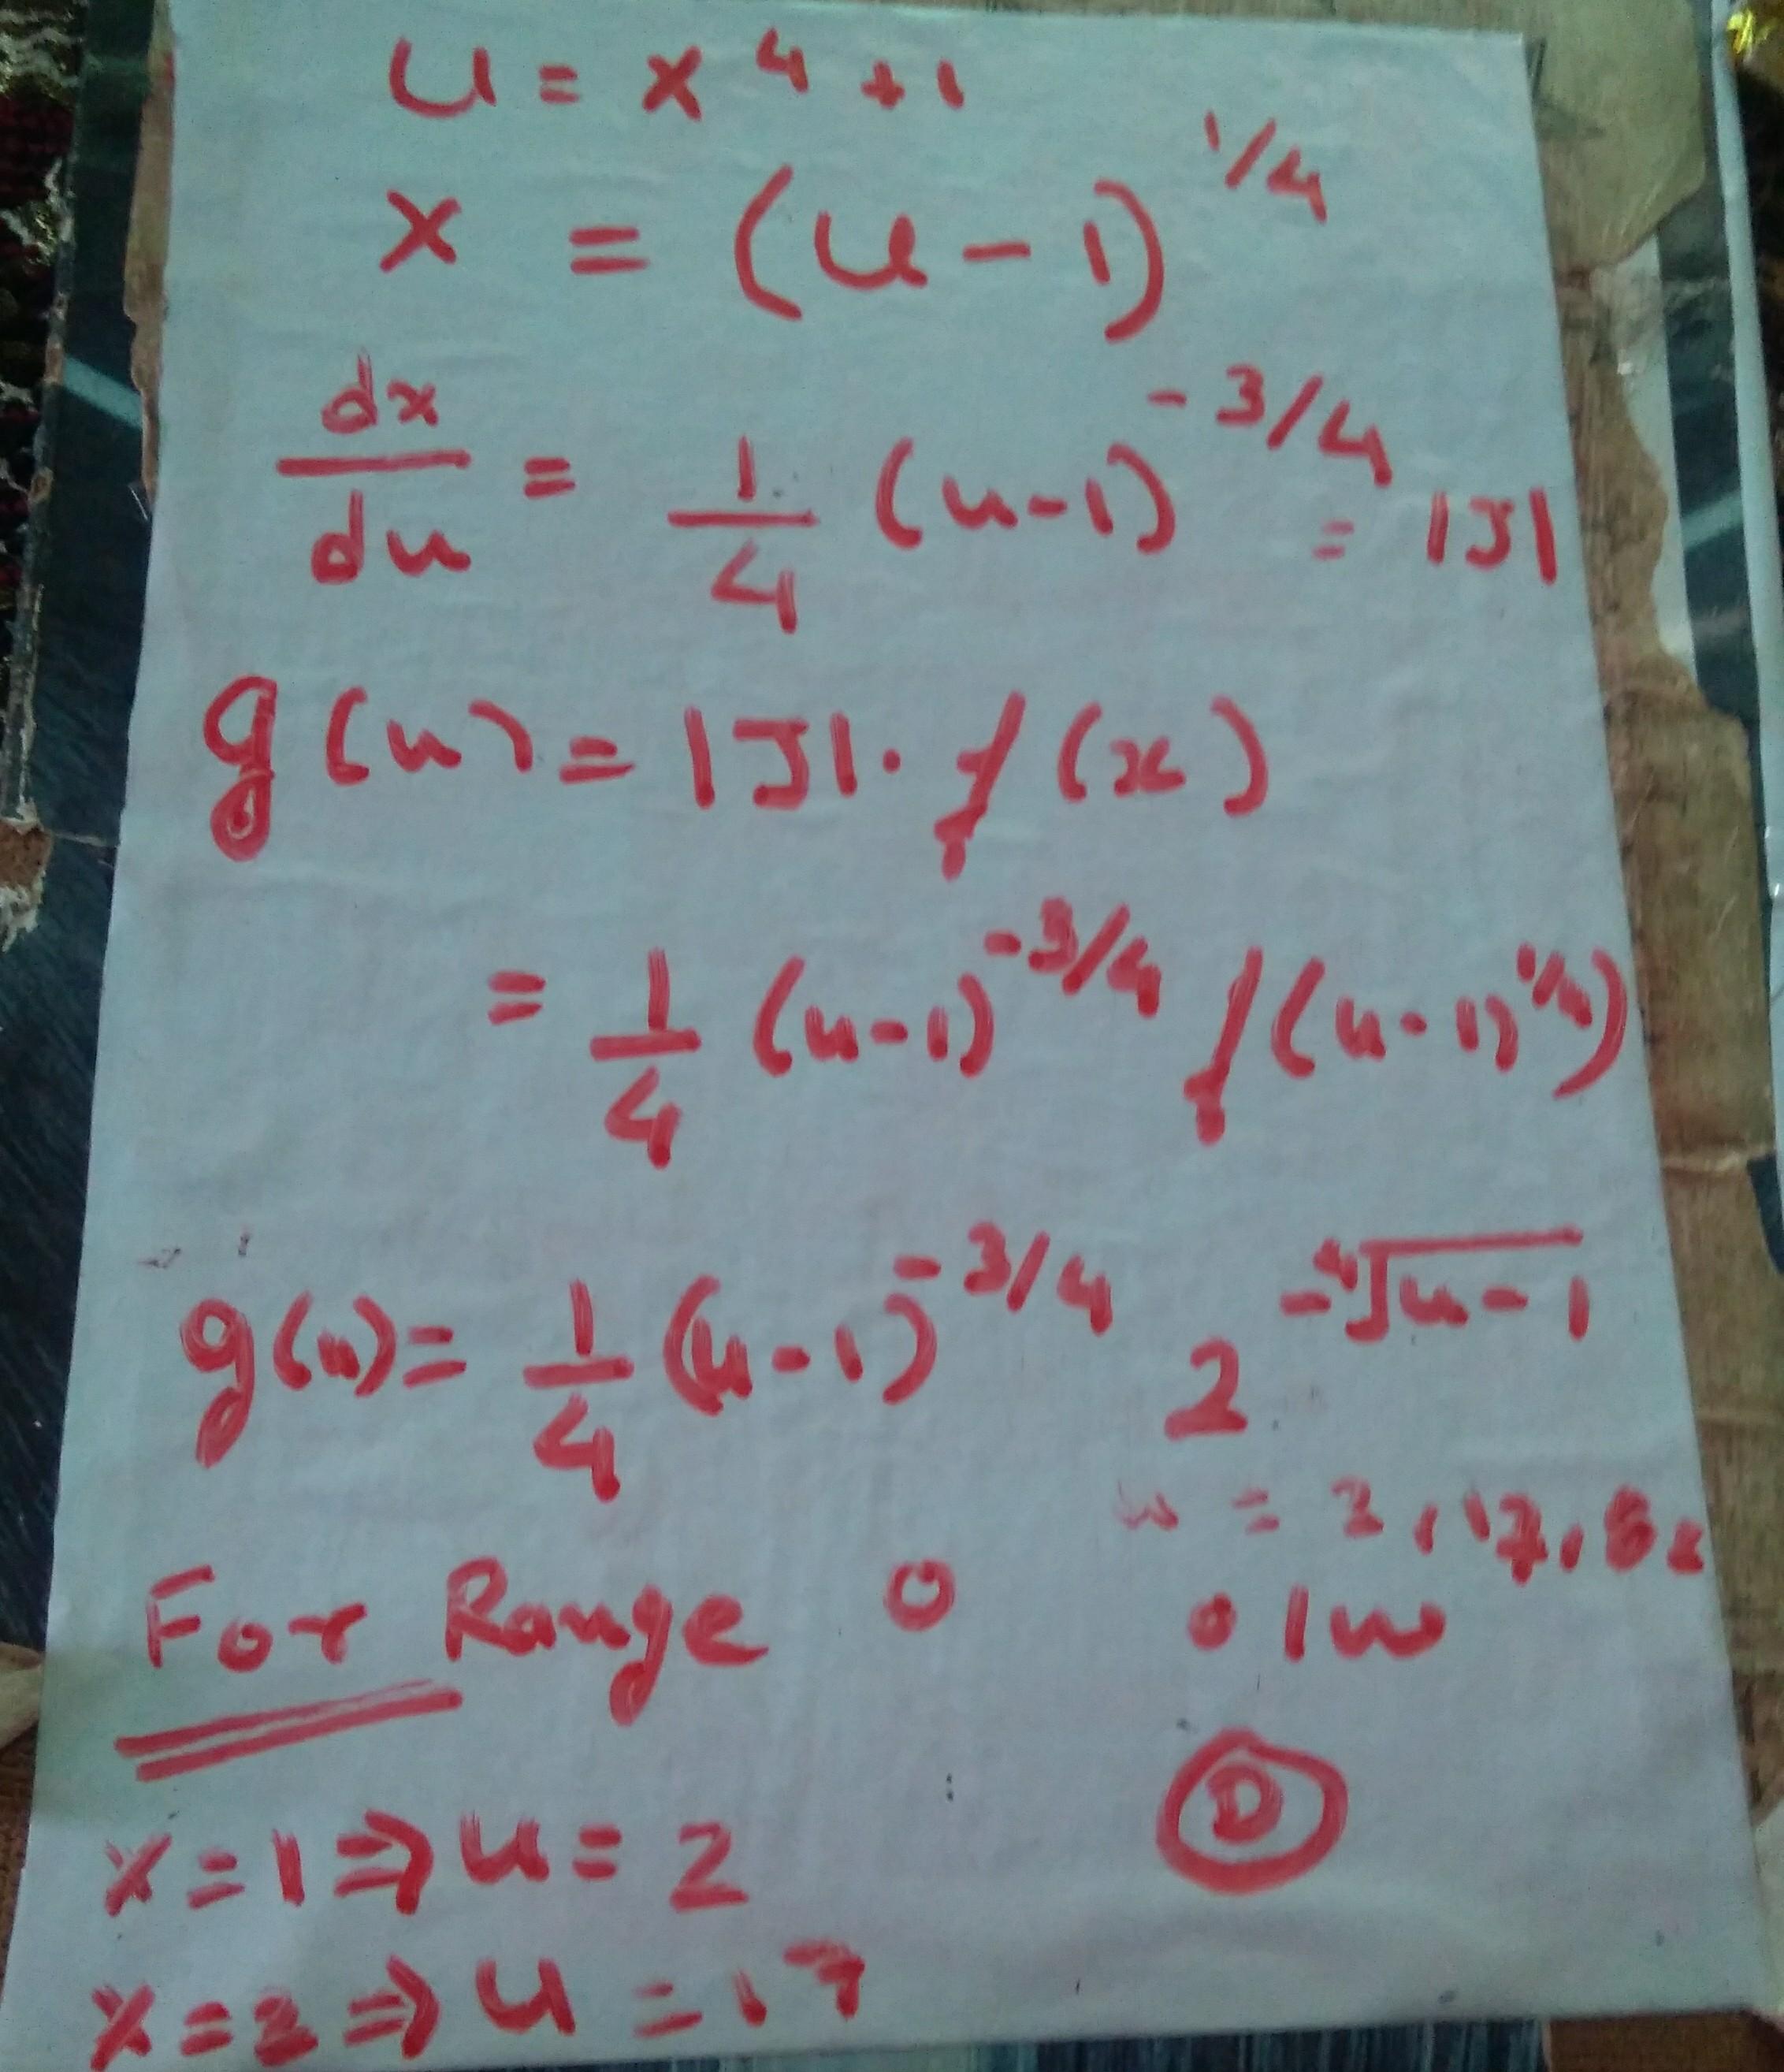 u = x⁴ + 1
x = (u - 1)^1/4
dx/du = 1/4 (u-1)^-3/4 = |J|
g(u) = |J| . f(x)
= 1/4 (u-1)^-3/4 f((u-1)^1/4)
g(u) = 1/4 (u-1)^-3/4 2^-⁴√u-1
u = 2, 17, 82
For Range 0 o/w
x = 1 ⇒ u = 2
D
x = 2 ⇒ u = 17